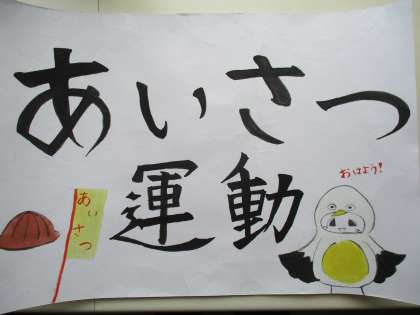 あいさつ
運動
おはよう!
あいさつ